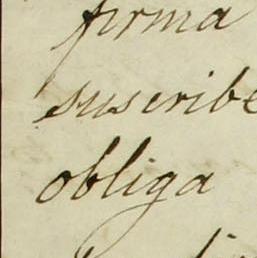 firma
suscribe
obliga